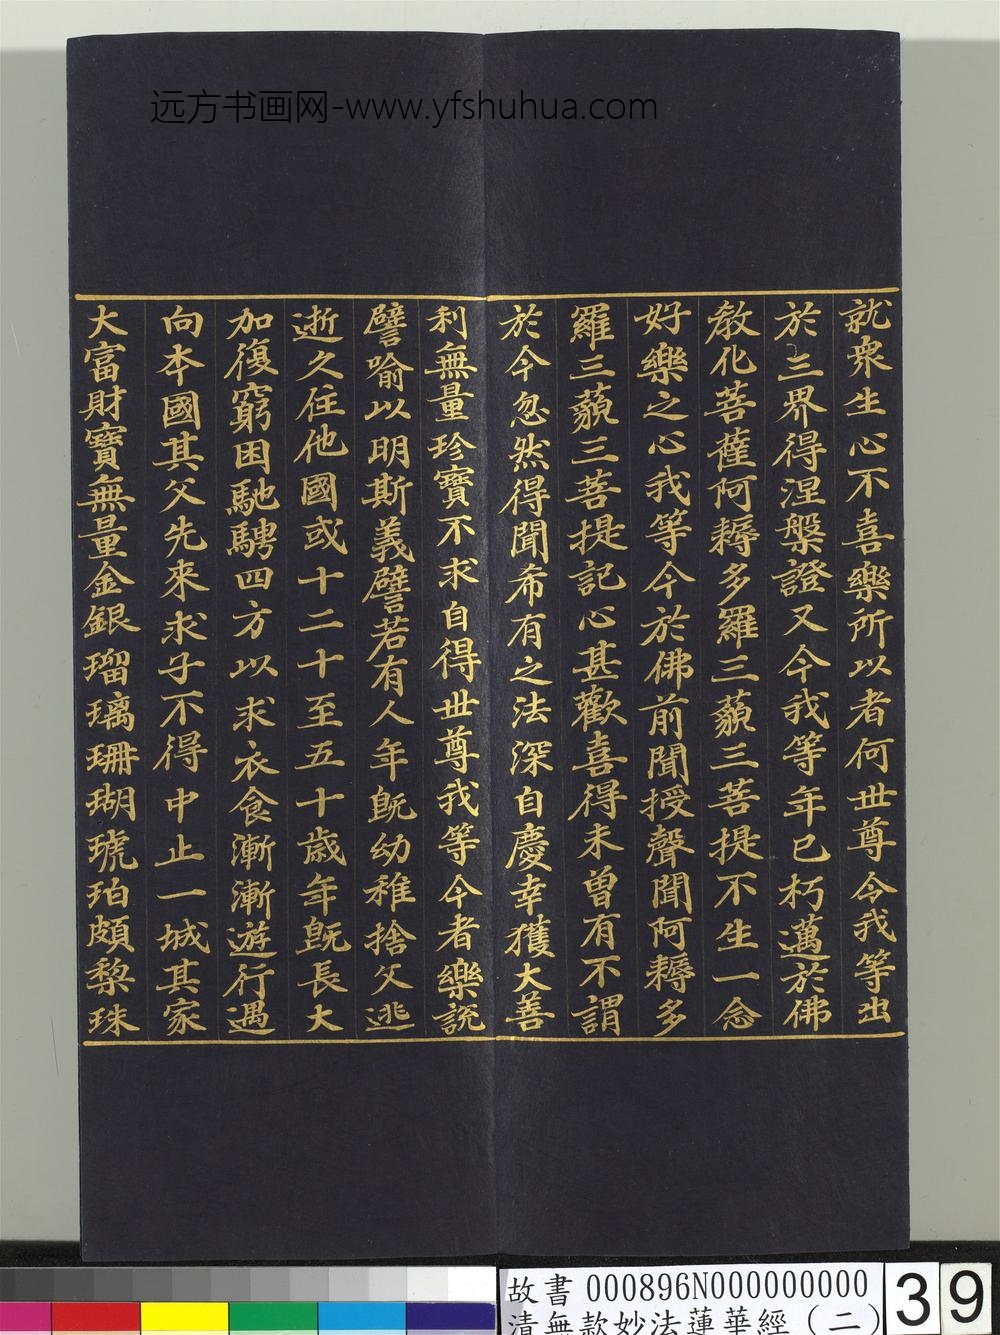 远方书画网-www.yfshuhua.com
就衆生心不喜樂所以者何世尊令我等出
於三界得涅槃證又今我等年已朽邁於佛
教化菩薩阿耨多羅三藐三菩提不生一念
好樂之心我等今於佛前聞授聲聞阿耨多
羅三藐三菩提記心甚歡喜得未曾有不謂
於今忽然得聞希有之法深自慶幸獲大善
利無量珍寶不求自得世尊我等今者樂說
譬喻以明斯義譬若有人年既幼稚捨父逃
逝久住他國或十二十至五十歲年既長大
加復窮困馳騁四方以求衣食漸漸遊行遇
向本國其父先來求子不得中止一城其家
大富財寶無量金銀瑠璃珊瑚琥珀頗黎珠
故書 000896N000000000
清無款妙法蓮華經(二)
39